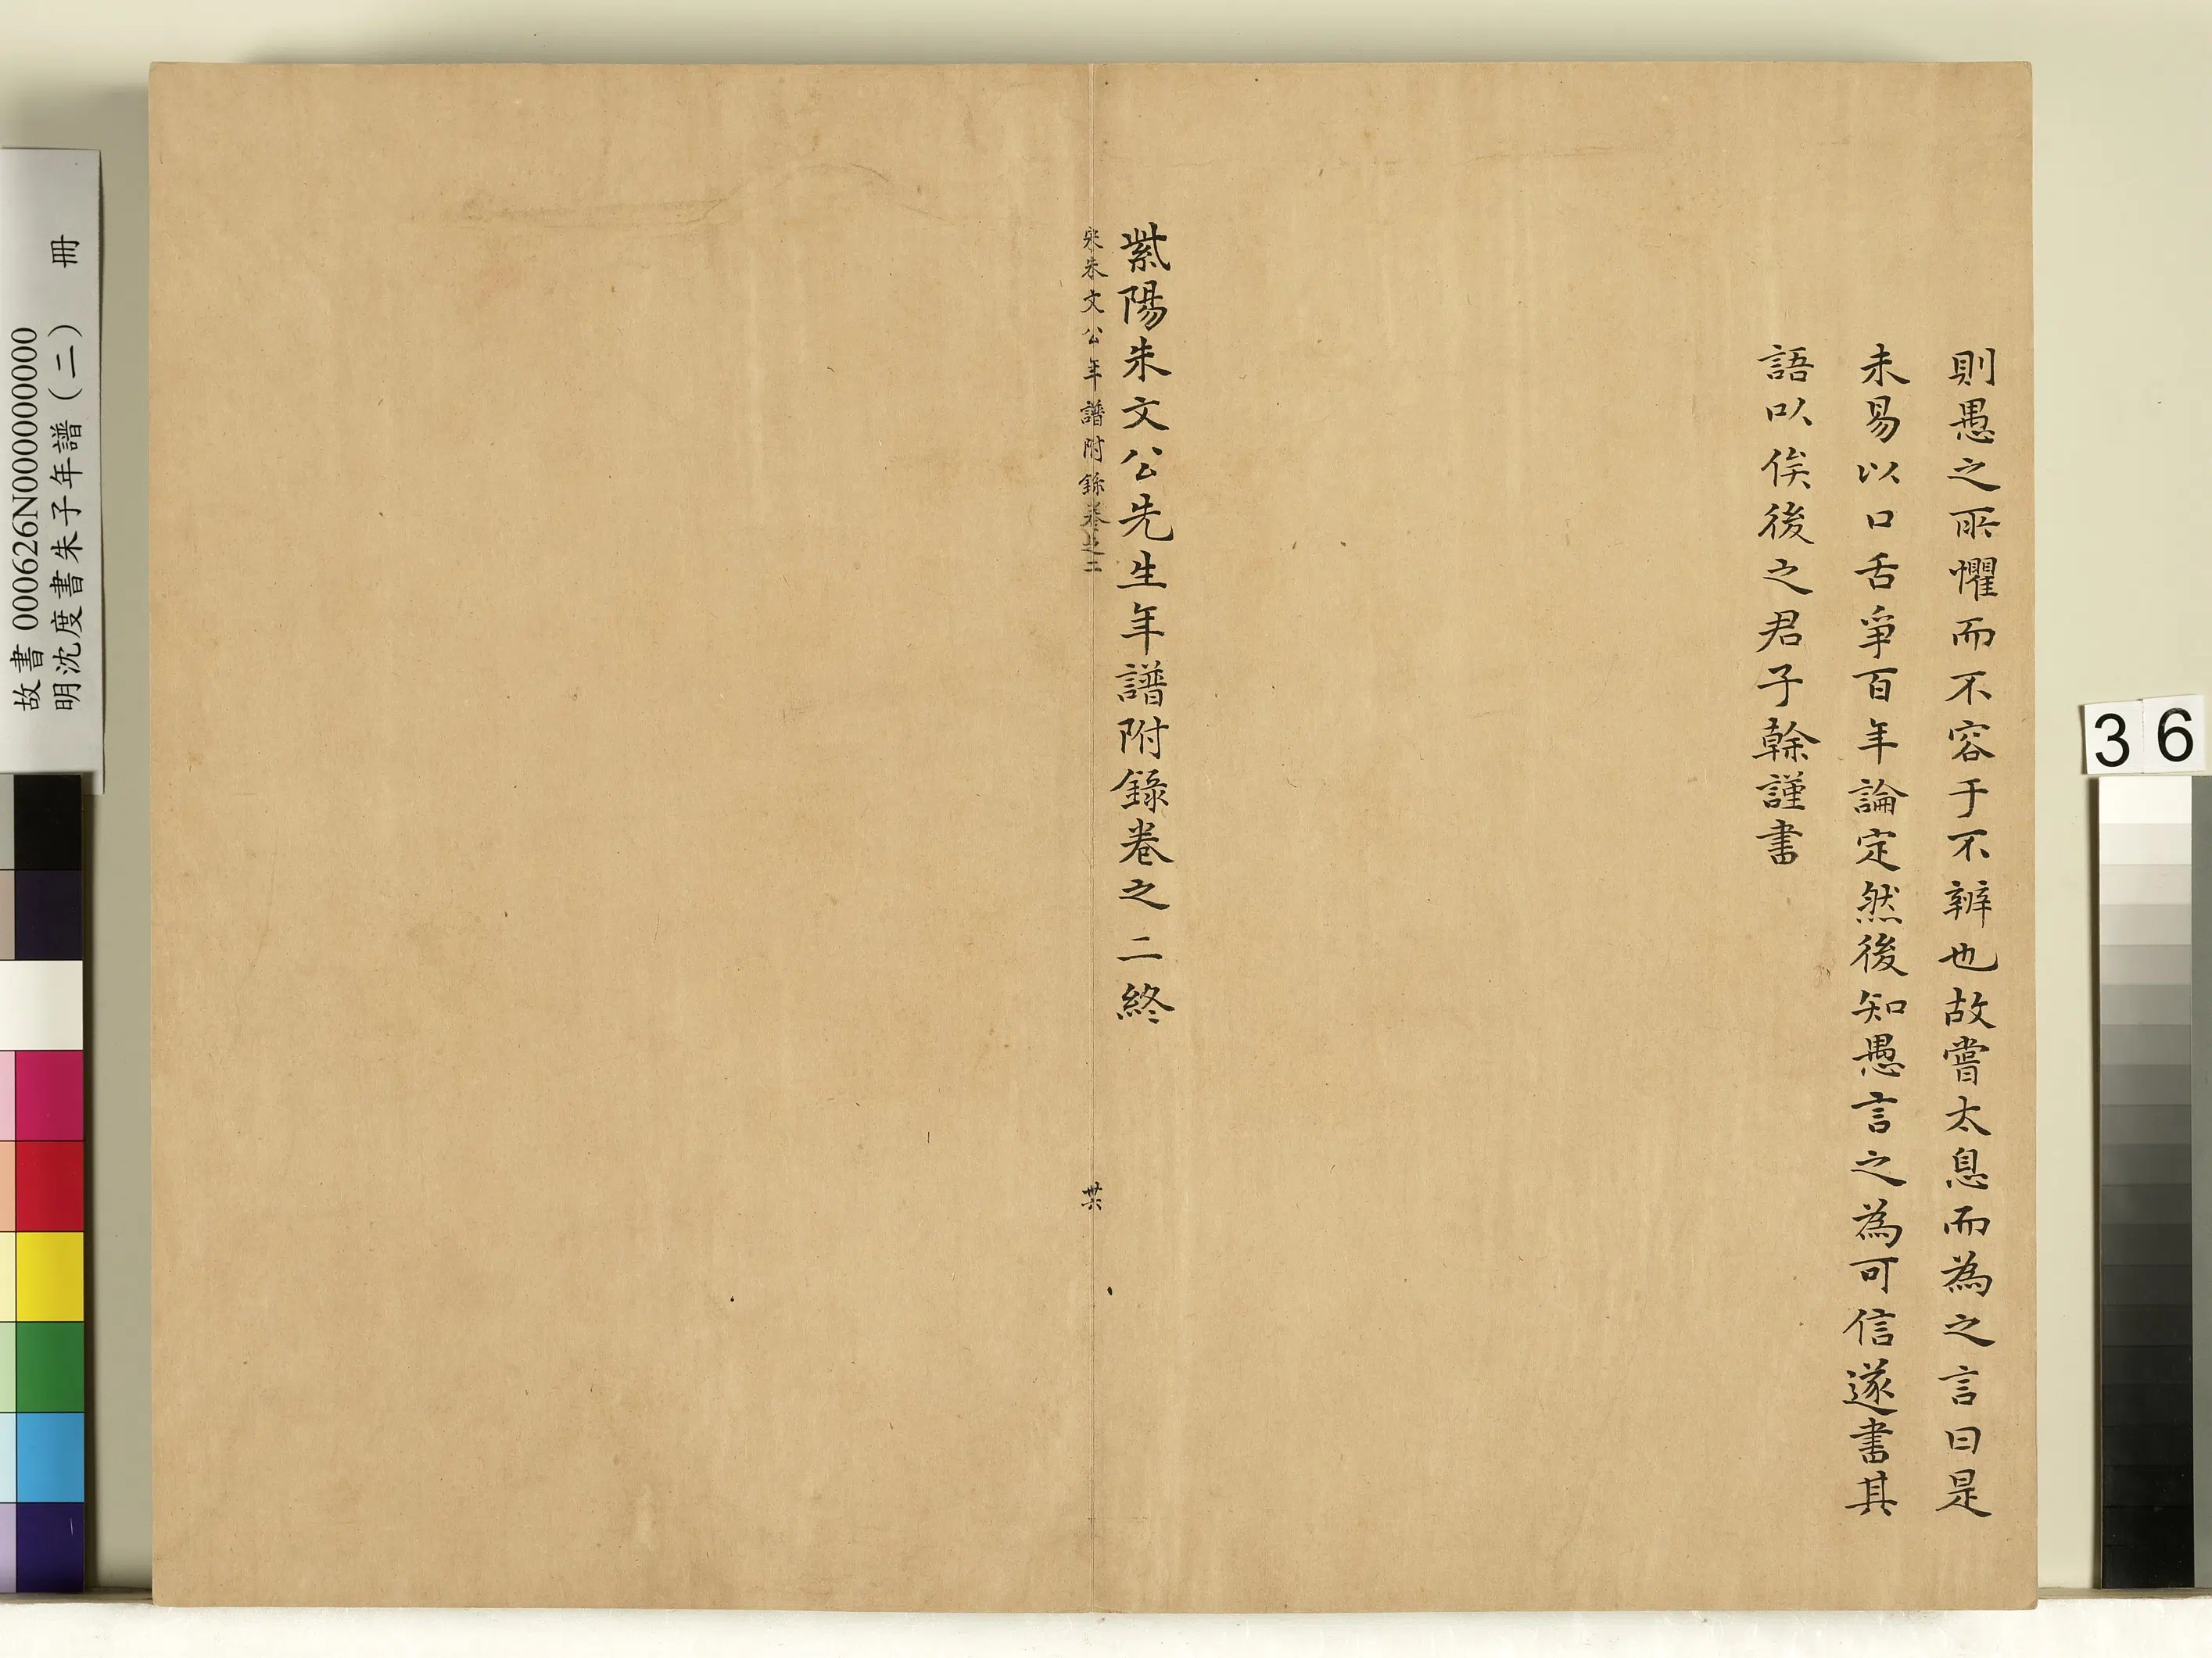 則愚之所懼而不容于不辨也故嘗太息而為之言曰是
未易以口舌爭百年論定然後知愚言之為可信遂書其
語以俟後之君子榦謹書
紫陽朱文公先生年譜附錄卷之二終
宋朱文公年譜附錄卷之二
卅六
冊
故書 000626N000000000
明沈度書朱子年譜（二）
36